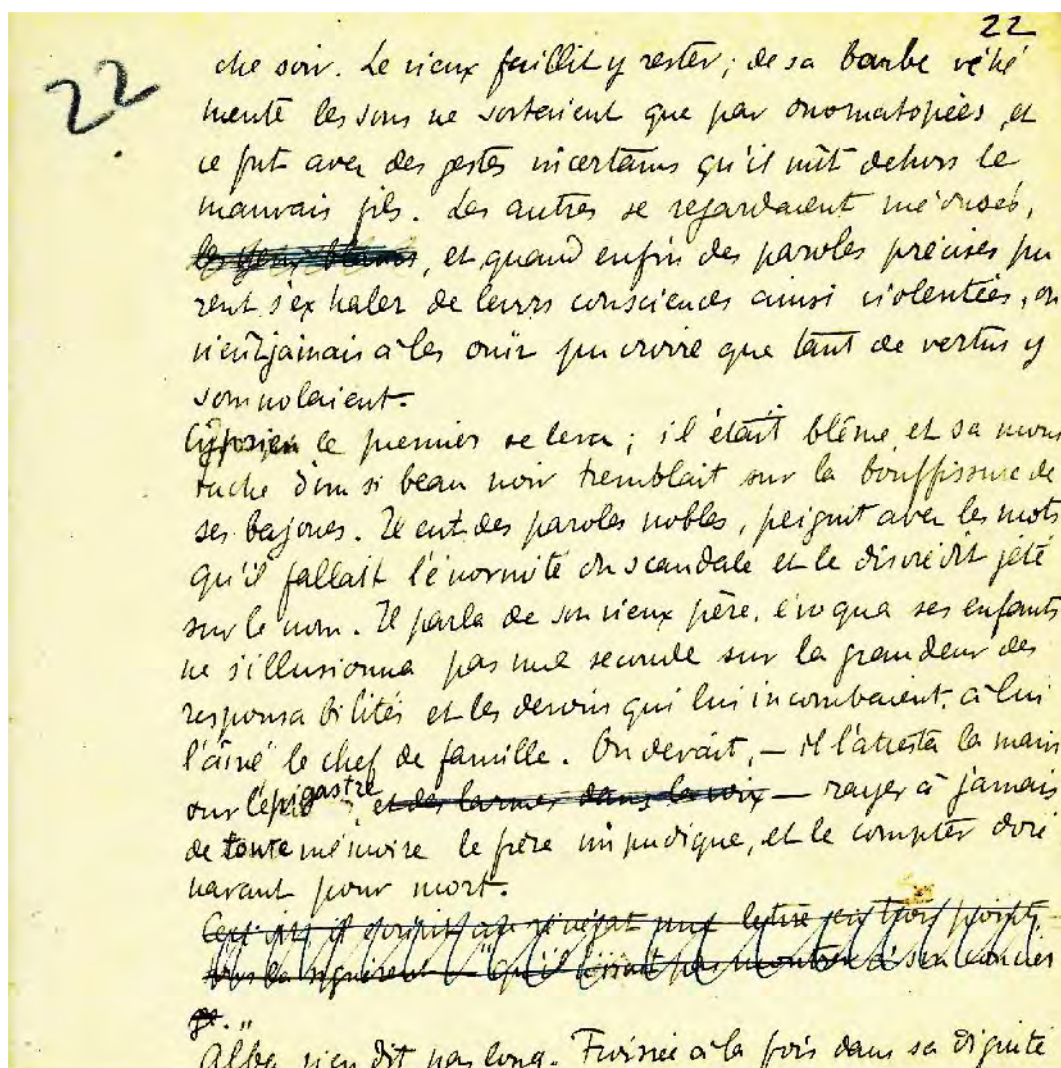 22
22
che soir. Le vieux faillit y rester ; de sa barbe véhé
mente les sons ne sortaient que par onomatopées, et
ce fut avec des gestes incertains qu'il mît dehors le
mauvais fils. Les autres se regardaient médusés,
les yeux blancs, et quand enfin des paroles précises pu
rent s'exhaler de leurs consciences ainsi violentées, on
n'eût jamais à les ouïr pu croire que tant de vertus y
somnolaient.
Cyprien le premier se leva ; il était blême et sa mous
tache d'un si beau noir tremblait sur la bouffissure de
ses bajoues. Il eut des paroles nobles, peignit avec les mots
qu'il fallait l'énormité du scandale et le discrédit jété
sur le nom. Il parla de son vieux père, évoqua ses enfants
ne s'illusionna pas une seconde sur la grandeur des
responsabilités et les devoirs qui lui incombaient, à lui
l'aîné le chef de famille. On devait, — il l'attesta la main
sur l'épigastre, et des larmes dans la voix — rayer à jamais
de toute mémoire le frère impudique, et le compter doré
navant pour mort.
il écrivit au renégat une lettre en trois points,
tous la signèrent — "qu'il n'irait pas montrer à son concier
ge. "
Alba n'en dit pas long. Froissée à la fois dans sa dignité